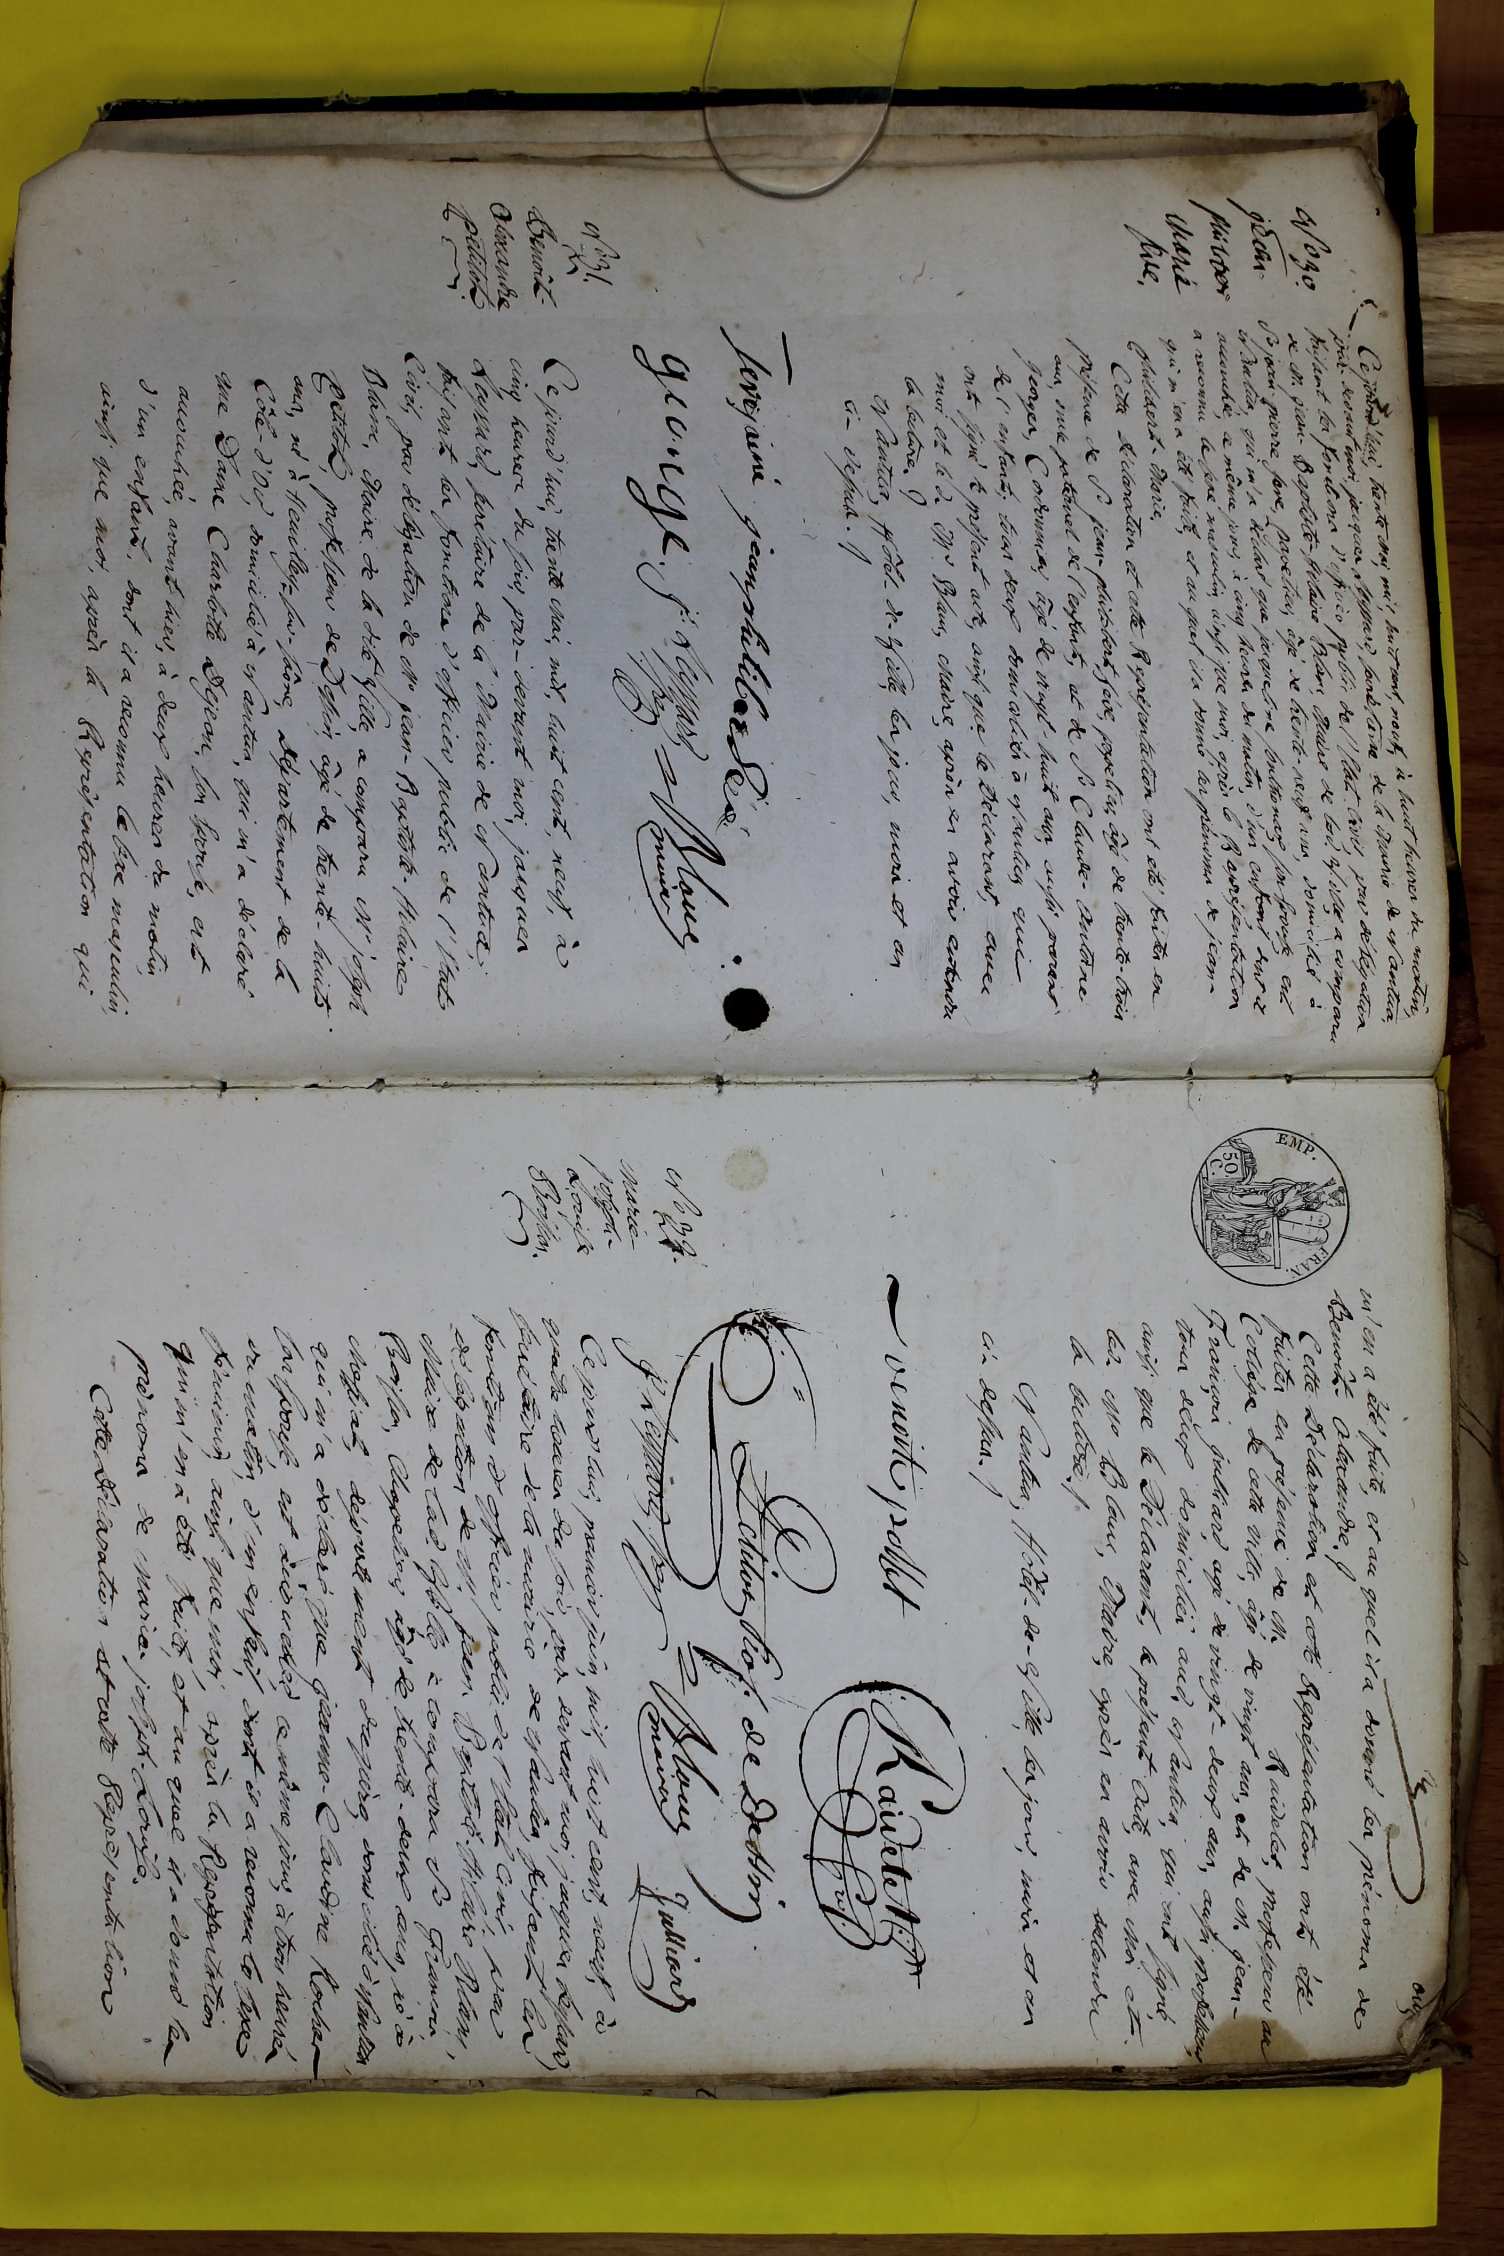 N.º 30.
jean
philibert
Marie
féve.
Ce jourd'hui, trente mai mil huit cent neuf, à huit heures du matin,
par devant moi jacques Leyssard secrétaire de la Mairie de Nantua,
faisant les fonctions d'officier public de l'état Civil, par délégation
de M. jean-Baptiste-hilaire Blanc, Maire de lad. Ville, a comparu
Sr. jean pierre feve, âgé de trente-neuf ans, domicilié à
Nantua, qui m'a déclaré que jacqueline son épouse est
accouchée, ce même jour, à cinq heures du matin, d'un enfant dont il
a reconnu le sexe masculin, ainsi que moi, après la Représentation
qui m'en a été faite, et au quel il a donné les prénoms de jean-
philibert-Marie.
Cette Déclaration et cette Représentation ont été faites en
présence de Sr. jean philibert feve, âgé de trente-trois
ans, oncle paternel de l'enfant, et de Sr. Claude-Antoine
georges, Cordonnier, âgé de vingt-huit ans aussi parent
de l'enfant, tous deux domiciliés à Nantua, qui
ont signé le présent acte, ainsi que le Déclarant, avec
moi et led. Mr. Blanc, Maire, après en avoir entendu
la lecture.
Nantua, hôtel-de-Ville, les jour, mois et an
ci-dessus.
feve jaine jean philiber Féve
george. J. Leyssard, Sre. Blanc
maire
N.º 31.
Benoit-
Alexandre
Petitot
Ce jourd'hui, trente mai, mil huit cent neuf, à
cinq heures du soir, par-devant moi, jacques
Leyssard, secrétaire de la Mairie de Nantua,
faisant les fonctions d'officier public de l'état
Civil, par délégation de Mr. jean-Baptiste-hilaire
Blanc, Maire de la dite Ville, a comparu Mr. joseph
Petitot, professeur de Dessin, âgé de trente-huit
ans, né à Heuilley-sur-Saône, Département de la
Côte-d'Or, domicilié à Nantua, qui m'a déclaré
que Dame Charlotte son épouse, est
accouchée, avant-hier, à deux heures du matin,
d'un enfant, dont il a reconnu le sexe masculin,
ainsi que moi, après la Représentation qui
EMP. FRAN.
50 C.
m'en a été faite, et au quel il a donné les prénoms de
Benoit-Alexandre.
Cette Déclaration et cette Représentation ont été
faites en présence de M. Raidelet, professeur au
Collège de cette ville, âgé de vingt ans, et de M. jean-
François julliard agé de vingt-deux ans, aussi professeur,
tous deux domiciliés aud. Nantua, qui ont signé,
ainsi que le Déclarant, le présent acte, avec moi et
led. Mr. Blanc, Maire, après en avoir entendu
la lecture.
Nantua, hôtel-de-Ville, les jour, mois et an
ci-dessus.
Raidelet
Prof.
Petitot prof. de Dessin
J. Leyssard, Sre. Blanc
maire Julliard
N.º 32.
Marie-
joseph-
Louise
Ce jourd'hui, premier juin, mil huit cent neuf, à
quatre heures du soir, par devant moi, jacques Leyssard
secrétaire de la mairie de Nantua, faisant les
fonctions d'officier public de l'état civil, par
délégation de M. jean-Baptiste-hilaire Blanc,
Maire de lad. Ville, a comparu Sr.
âgé de trente-deux ans, né à
domicilié à Nantua,
qui m'a déclaré que jeanne-Claudine
son épouse, est accouchée, ce même jour, à trois heures
du matin, d'un enfant, dont il a reconnu le sexe
féminin, ainsi que moi, après la Représentation
qui m'en a été faite, et au quel il a donné les
prénoms de Marie-joseph-Louise.
Cette Déclaration et cette Représentation